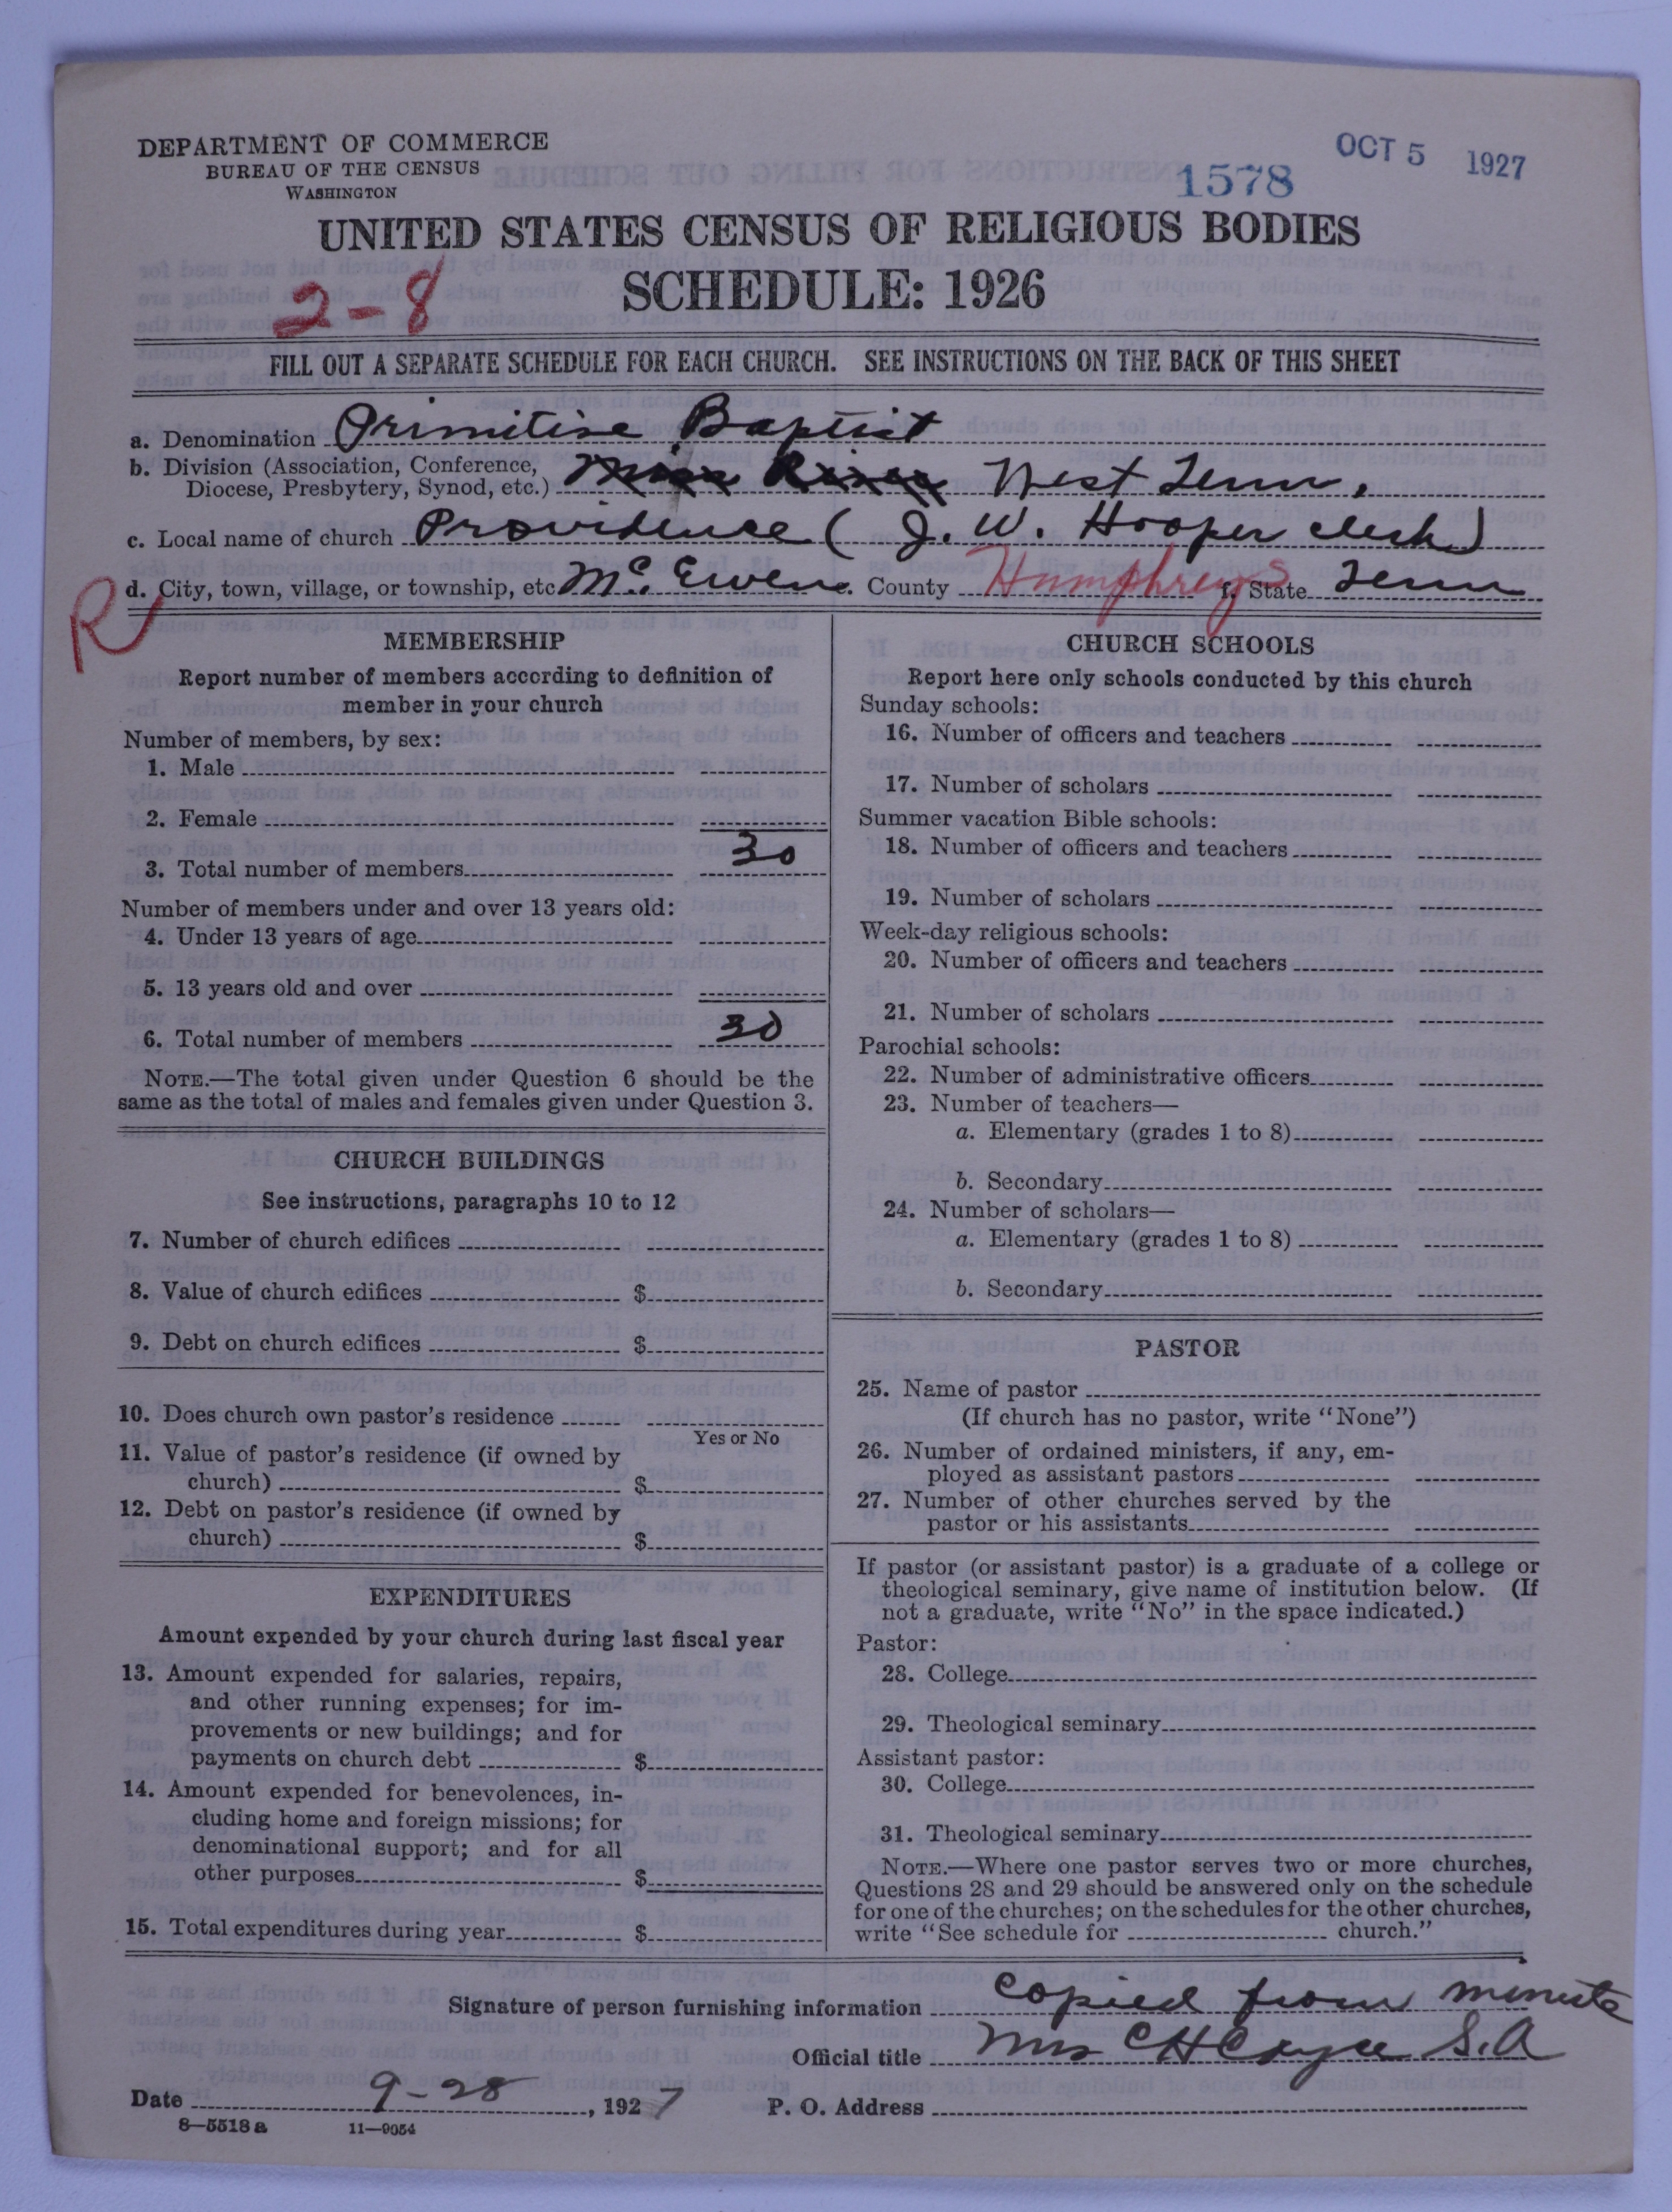 DEPARTMENT OF COMMERCE
BUREAU OF THE CENSUS
WASHINGTON
1578
OCT 5 1927
UNITED STATES CENSUS OF RELIGIOUS BODIES
SCHEDULE: 1926
2-8
FILL OUT A SEPARATE SCHEDULE FOR EACH CHURCH. SEE INSTRUCTIONS ON THE BACK OF THIS SHEET
a. Denomination Primitive Baptist
b. Division (Association, Conference,
Diocese, Presbytery, Synod, etc.) Miss River West Tenn.
c. Local name of church Providence (J. W. Hooper clerk)
R
d. City, town, village, or township, etc. McEwen e. County Humphreys f. State Tenn
MEMBERSHIP
Report number of members according to definition of
member in your church
Number of members, by sex:
1. Male
2. Female
3. Total number of members 30
Number of members under and over 13 years old:
4. Under 13 years of age
5. 13 years old and over
6. Total number of members 30
NOTE.—The total given under Question 6 should be the
same as the total of males and females given under Question 3.
CHURCH BUILDINGS
See instructions, paragraphs 10 to 12
7. Number of church edifices
8. Value of church edifices $
9. Debt on church edifices $
10. Does church own pastor's residence
Yes or No
11. Value of pastor's residence (if owned by
church) $
12. Debt on pastor's residence (if owned by
church) $
EXPENDITURES
Amount expended by your church during last fiscal year
13. Amount expended for salaries, repairs,
and other running expenses; for im-
provements or new buildings; and for
payments on church debt $
14. Amount expended for benevolences, in-
cluding home and foreign missions; for
denominational support; and for all
other purposes $
15. Total expenditures during year $
CHURCH SCHOOLS
Report here only schools conducted by this church
Sunday schools:
16. Number of officers and teachers
17. Number of scholars
Summer vacation Bible schools:
18. Number of officers and teachers
19. Number of scholars
Week-day religious schools:
20. Number of officers and teachers
21. Number of scholars
Parochial schools:
22. Number of administrative officers
23. Number of teachers—
a. Elementary (grades 1 to 8)
b. Secondary
24. Number of scholars—
a. Elementary (grades 1 to 8)
b. Secondary
PASTOR
25. Name of pastor
(If church has no pastor, write "None")
26. Number of ordained ministers, if any, em-
ployed as assistant pastors
27. Number of other churches served by the
pastor or his assistants
If pastor (or assistant pastor) is a graduate of a college or
theological seminary, give name of institution below. (If
not a graduate, write "No" in the space indicated.)
Pastor:
28. College
29. Theological seminary
Assistant pastor:
30. College
31. Theological seminary
NOTE.—Where one pastor serves two or more churches,
Questions 28 and 29 should be answered only on the schedule
for one of the churches; on the schedules for the other churches,
write "See schedule for church."
Signature of person furnishing information copied from minute
Official title Mrs C H Cayce S.A
Date 9-28, 1927 P. O. Address
8—5518 a 11—9054